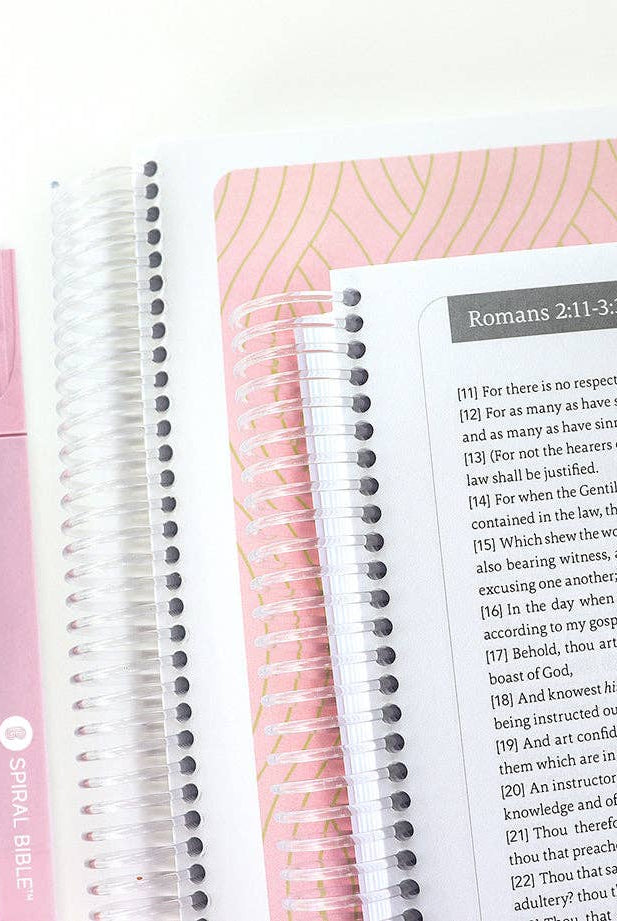 Romans 2:11-3:
[11] For there is no respect
[12] For as many as have
and as many as have sinn
[13] (For not the hearers
law shall be justified.
[14] For when the Gentil
contained in the law, th
[15] Which shew the wo
also bearing witness, a
excusing one another;
[16] In the day when
according to my gosp
[17] Behold, thou art
boast of God,
[18] And knowest his
being instructed ou
[19] And art confid
them which are in
[20] An instructor
knowledge and of
[21] Thou therefo
thou that preach
[22] Thou that sa
adultery? thou t
Thou that
SPIRAL BIBLE™